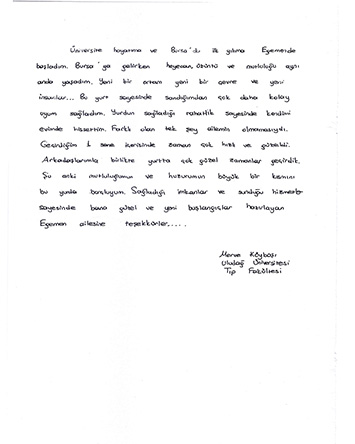 Üniversite hayatıma ve Bursa'da ilk yılıma Egemen'de
başladım. Bursa'ya gelirken heyecan, üzüntü ve mutluluğu aynı
anda yaşadım. Yeni bir ortam yeni bir çevre ve yeni
insanlar... Bu yurt sayesinde sandığımdan çok daha kolay
uyum sağladım. Yurdun sağladığı rahatlık sayesinde kendimi
evimde hissettim. Farklı olan tek şey ailemin olmamasıydı.
Geçirdiğim 1 sene içerisinde zaman çok hızlı ve güzeldi.
Arkadaşlarımla birlikte yurtta çok güzel zamanlar geçirdik.
Şu anki mutluluğumun ve huzurumun büyük bir kısmını
bu yurda borçluyum. Sağladığı imkanlar ve sunduğu hizmetler
sayesinde bana güzel ve yeni başlangıçlar hazırlayan
Egemen ailesine teşekkürler.....
Merve Köybaşı
Uludağ Üniversitesi
Tıp Fakültesi